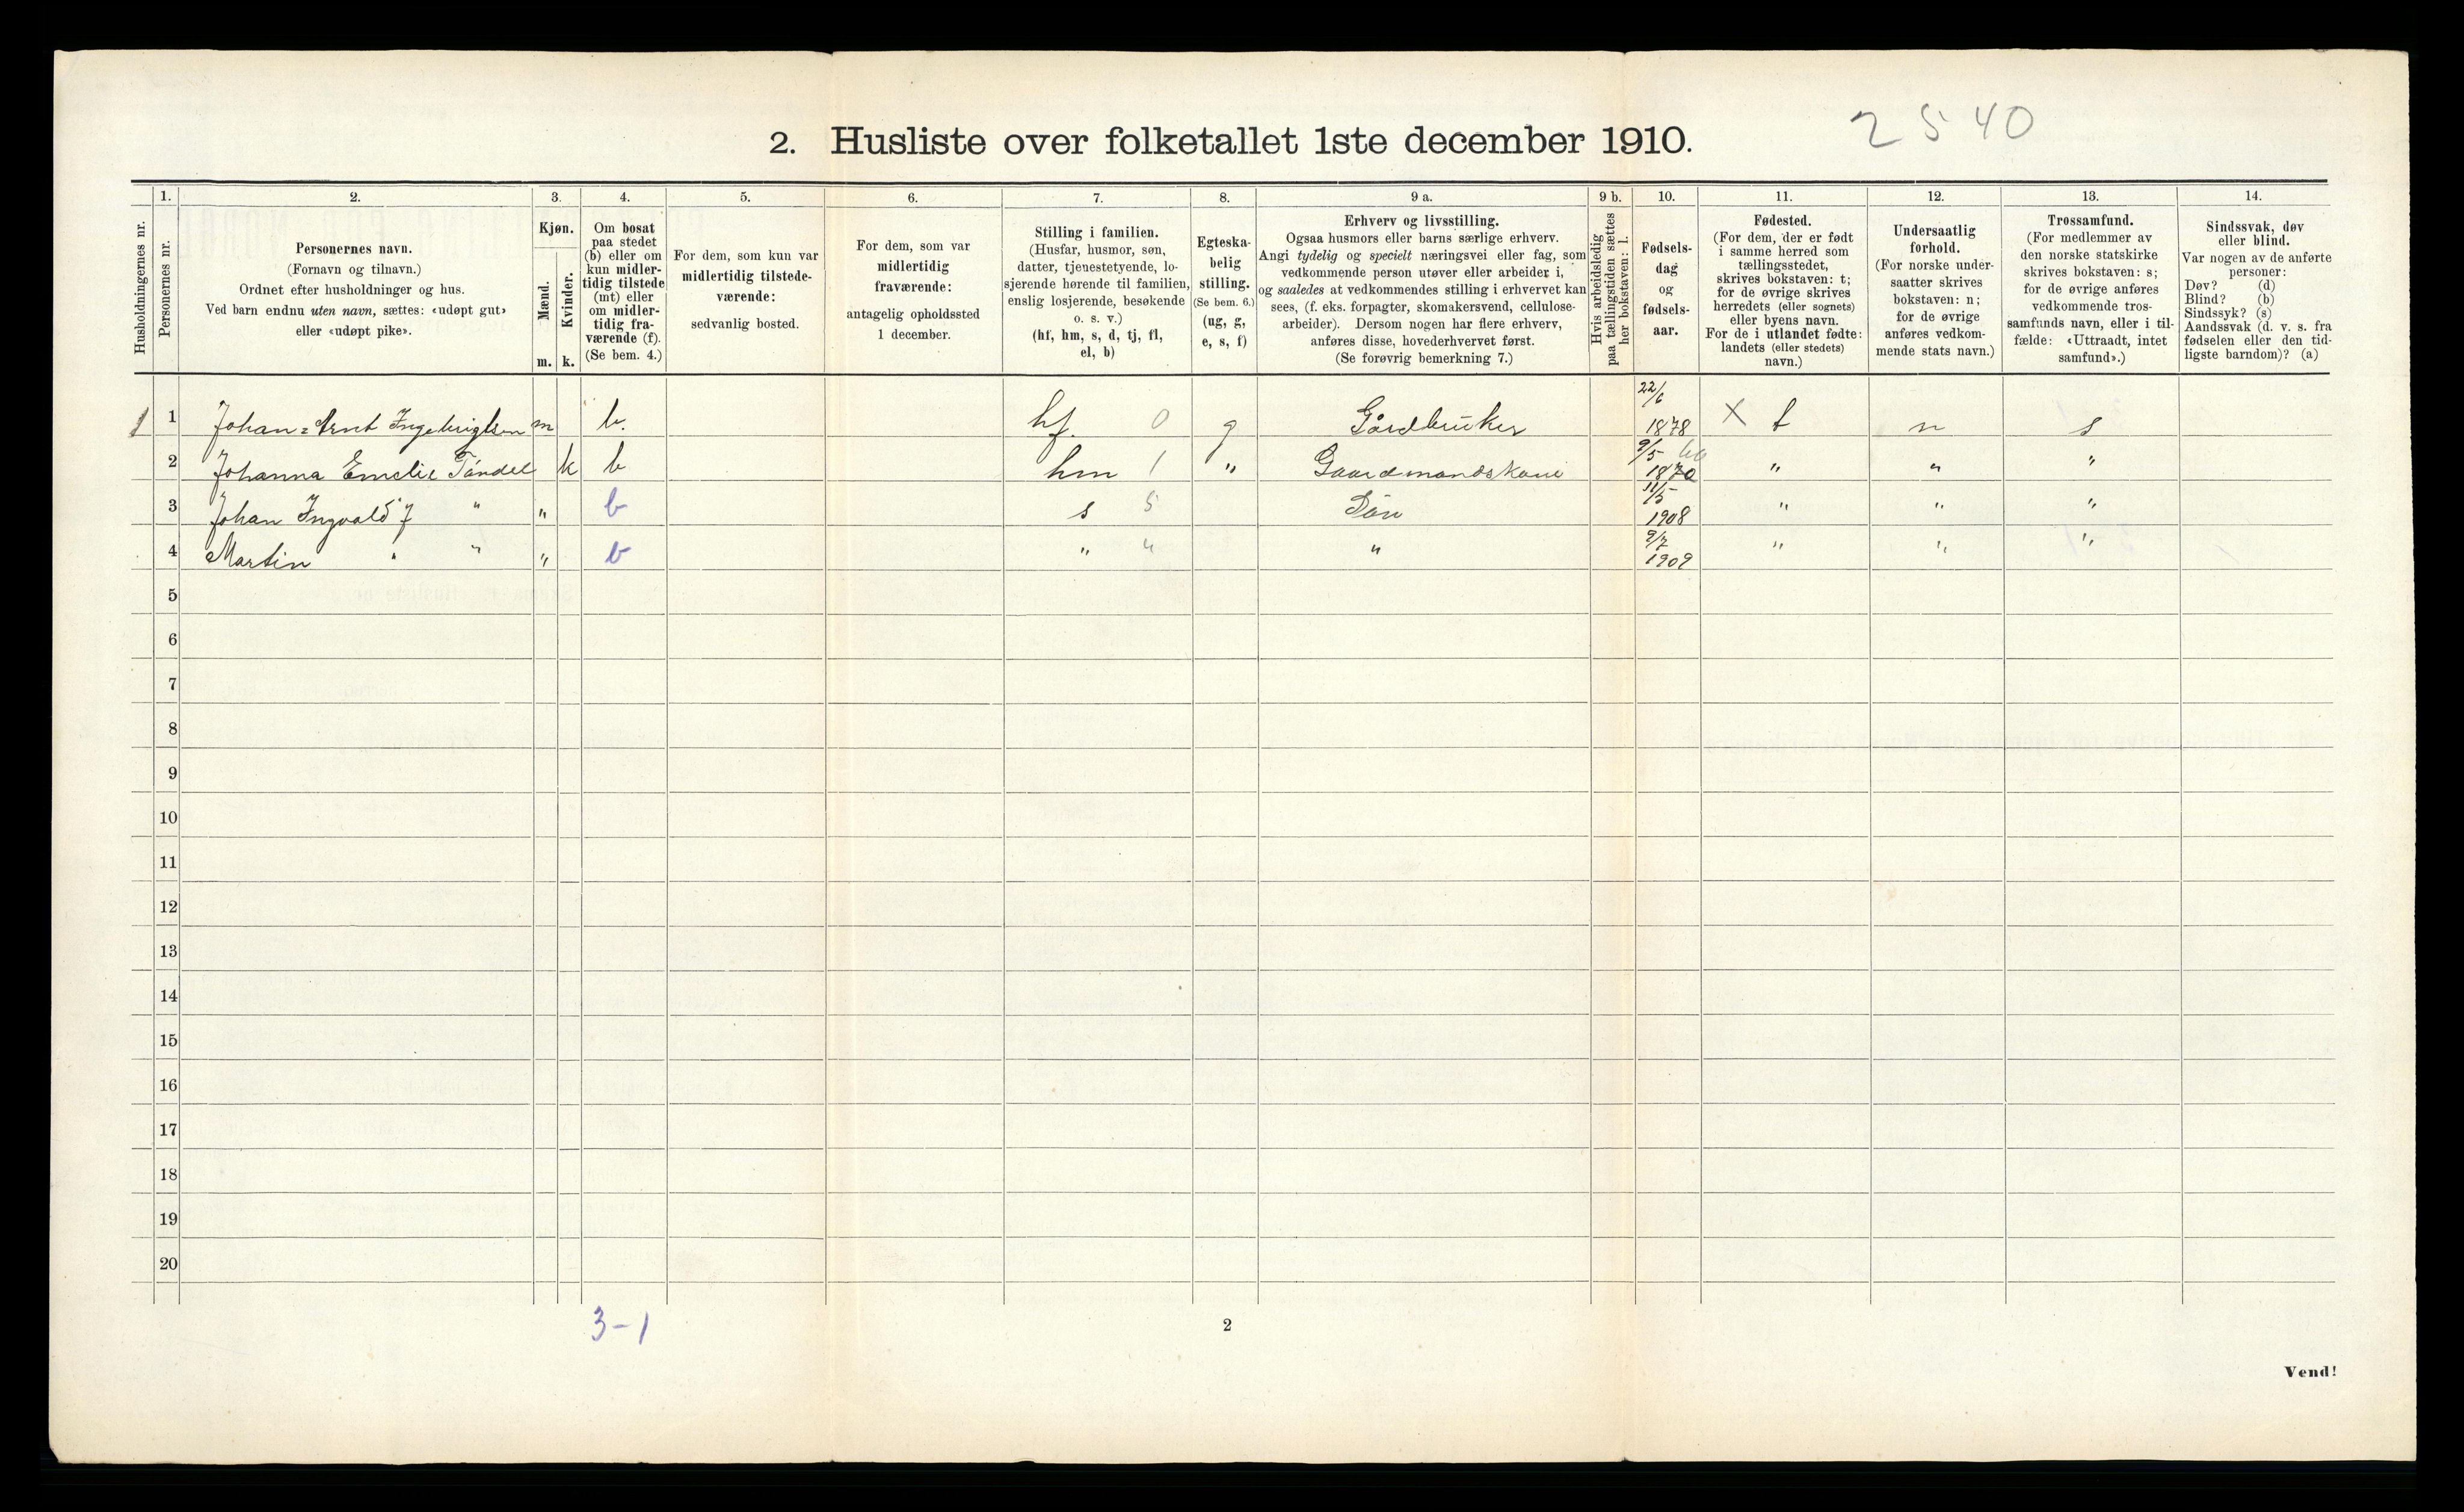 2 5 40
2. Husliste over folketallet 1ste december 1910.
1. 2. 3. 4. 5. 6. 7. 8. 9 a. 9 b. 10. 11. 12. 13. 14.
Husholdningernes nr.
Personernes nr.
Personernes navn.
(Fornavn og tilnavn.)
Ordnet efter husholdninger og hus.
Ved barn endnu uten navn, sættes: «udøpt gut»
eller «udøpt pike».
Kjøn.
Mænd.
Kvinder.
m. k.
Om bosat
paa stedet
(b) eller om
kun midler-
tidig tilstede
(mt) eller
om midler-
tidig fra-
værende (f).
(Se bem. 4.)
For dem, som kun var
midlertidig tilstede-
værende:
sedvanlig bosted.
For dem, som var
midlertidig
fraværende:
antagelig opholdssted
1 december.
Stilling i familien.
(Husfar, husmor, søn,
datter, tjenestetyende, lo-
sjerende hørende til familien,
enslig losjerende, besøkende
o. s. v.)
(hf, hm, s, d, tj, fl,
el, b)
Egteska-
belig
stilling.
(Se bem. 6.)
(ug, g,
e, s, f)
Erhverv og livsstilling.
Ogsaa husmors eller barns særlige erhverv.
Angi tydelig og specielt næringsvei eller fag, som
vedkommende person utøver eller arbeider i,
og saaledes at vedkommendes stilling i erhvervet kan
sees, (f. eks. forpagter, skomakersvend, cellulose-
arbeider). Dersom nogen har flere erhverv,
anføres disse, hovederhvervet først.
(Se forøvrig bemerkning 7.)
Hvis arbeidsledig
paa tællingstiden sættes
her bokstaven: l.
Fødsels-
dag
og
fødsels-
aar.
Fødested.
(For dem, der er født
i samme herred som
tællingsstedet,
skrives bokstaven: t;
for de øvrige skrives
herredets (eller sognets)
eller byens navn.
For de i utlandet fødte:
landets (eller stedets)
navn.)
Undersaatlig
forhold.
(For norske under-
saatter skrives
bokstaven: n;
for de øvrige
anføres vedkom-
mende stats navn.)
Trossamfund.
(For medlemmer av
den norske statskirke
skrives bokstaven: s;
for de øvrige anføres
vedkommende tros-
samfunds navn, eller i til-
fælde: «Uttraadt, intet
samfund».)
Sindssvak, døv
eller blind.
Var nogen av de anførte
personer:
Døv? (d)
Blind? (b)
Sindssyk? (s)
Aandssvak (d. v. s. fra
fødselen eller den tid-
ligste barndom)? (a)
1 1 Johan=Arnt Ingebrigtsen m b. hf. 0 g Gårdbruker 22/6 1878 X t n s
2 Johanna Emelie Tøndel k b hm 1 " Gaardmandskone 9/5 1870 " " "
3 Johan Ingvald J " " b s 5 Søn 11/5 1908 " " "
4 Martin " " " b " " " 9/7 1909 " " "
5
6
7
8
9
10
11
12
13
14
15
16
17
18
19
20
3-1
2
Vend!